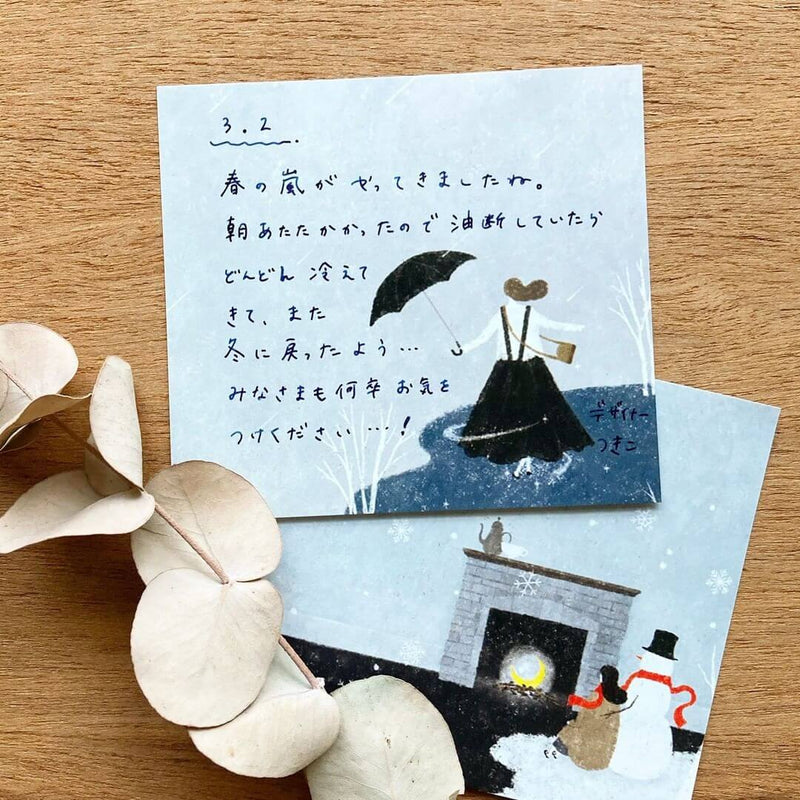 3.2
春の嵐がやってきましたね。
朝あたたかかったので油断していたら
どんどん冷えて
きて、また
冬に戻ったよう…
みなさまも何卒お気を
つけください…!
デザイナー
つきこ